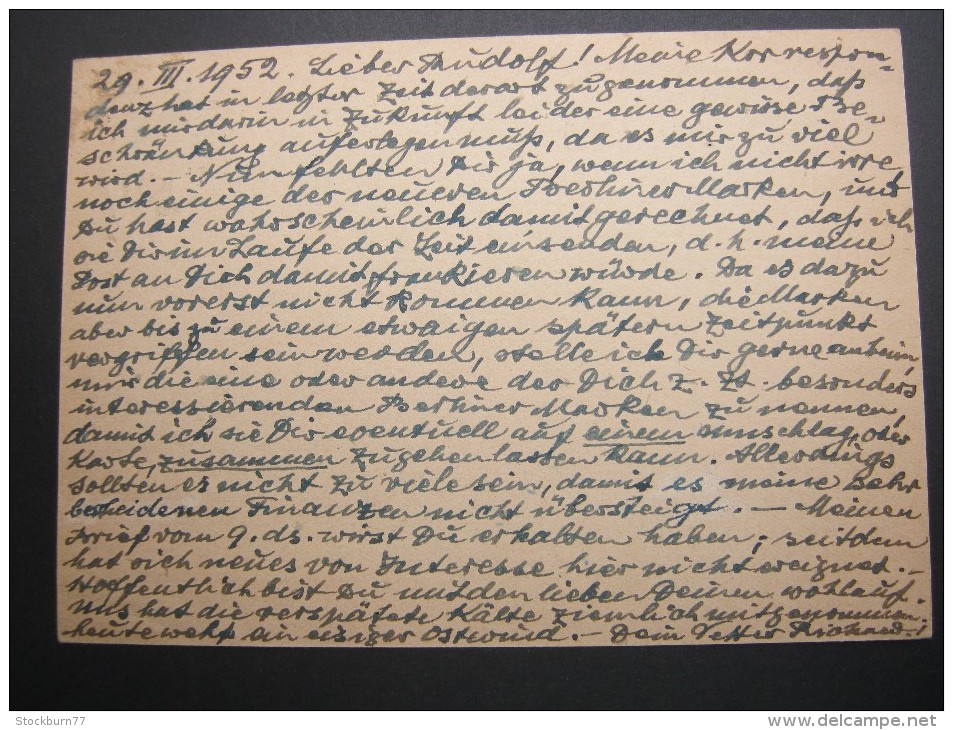 29. III. 1952. Lieber Rudolf! Meine Korrespon-
denz hat in letzter Zeit derart zugenommen, daß
ich mir darin in Zukunft leider eine gewisse Be-
schränkung auferlegen muß, da es mir zu viel
wird. — Nun fehlten Dir ja, wenn ich nicht irre,
noch einige der neueren Berliner Marken, und
Du hast wahrscheinlich damit gerechnet, daß ich
sie Dir im Laufe der Zeit einsenden, d. h. meine
Post an Dich damit frankieren würde. Da es dazu
nun vorerst nicht kommen kann, die Marken
aber bis zu einem etwaigen spätern Zeitpunkt
vergriffen sein werden, stelle ich Dir gerne anheim
mir die eine oder andere der Dich z. Zt. besonders
interessierenden Berliner Marken zu nennen,
damit ich sie Dir eventuell auf einem Umschlag, oder
Karte, zusammen zugehen lassen kann. Allerdings
sollten es nicht zu viele sein, damit es meine sehr
bescheidenen Finanzen nicht übersteigt. — Meinen
Brief vom 9. ds. wirst Du erhalten haben; seitdem
hat sich neues von Interesse hier nicht ereignet. —
Hoffentlich bist Du mit den lieben Deinen wohlauf.
Uns hat die verspätete Kälte ziemlich mitgenommen;
heute weht ein eisiger Ostwind. — Dein Vetter Richard.
Stockburn77
www.delcampe.net